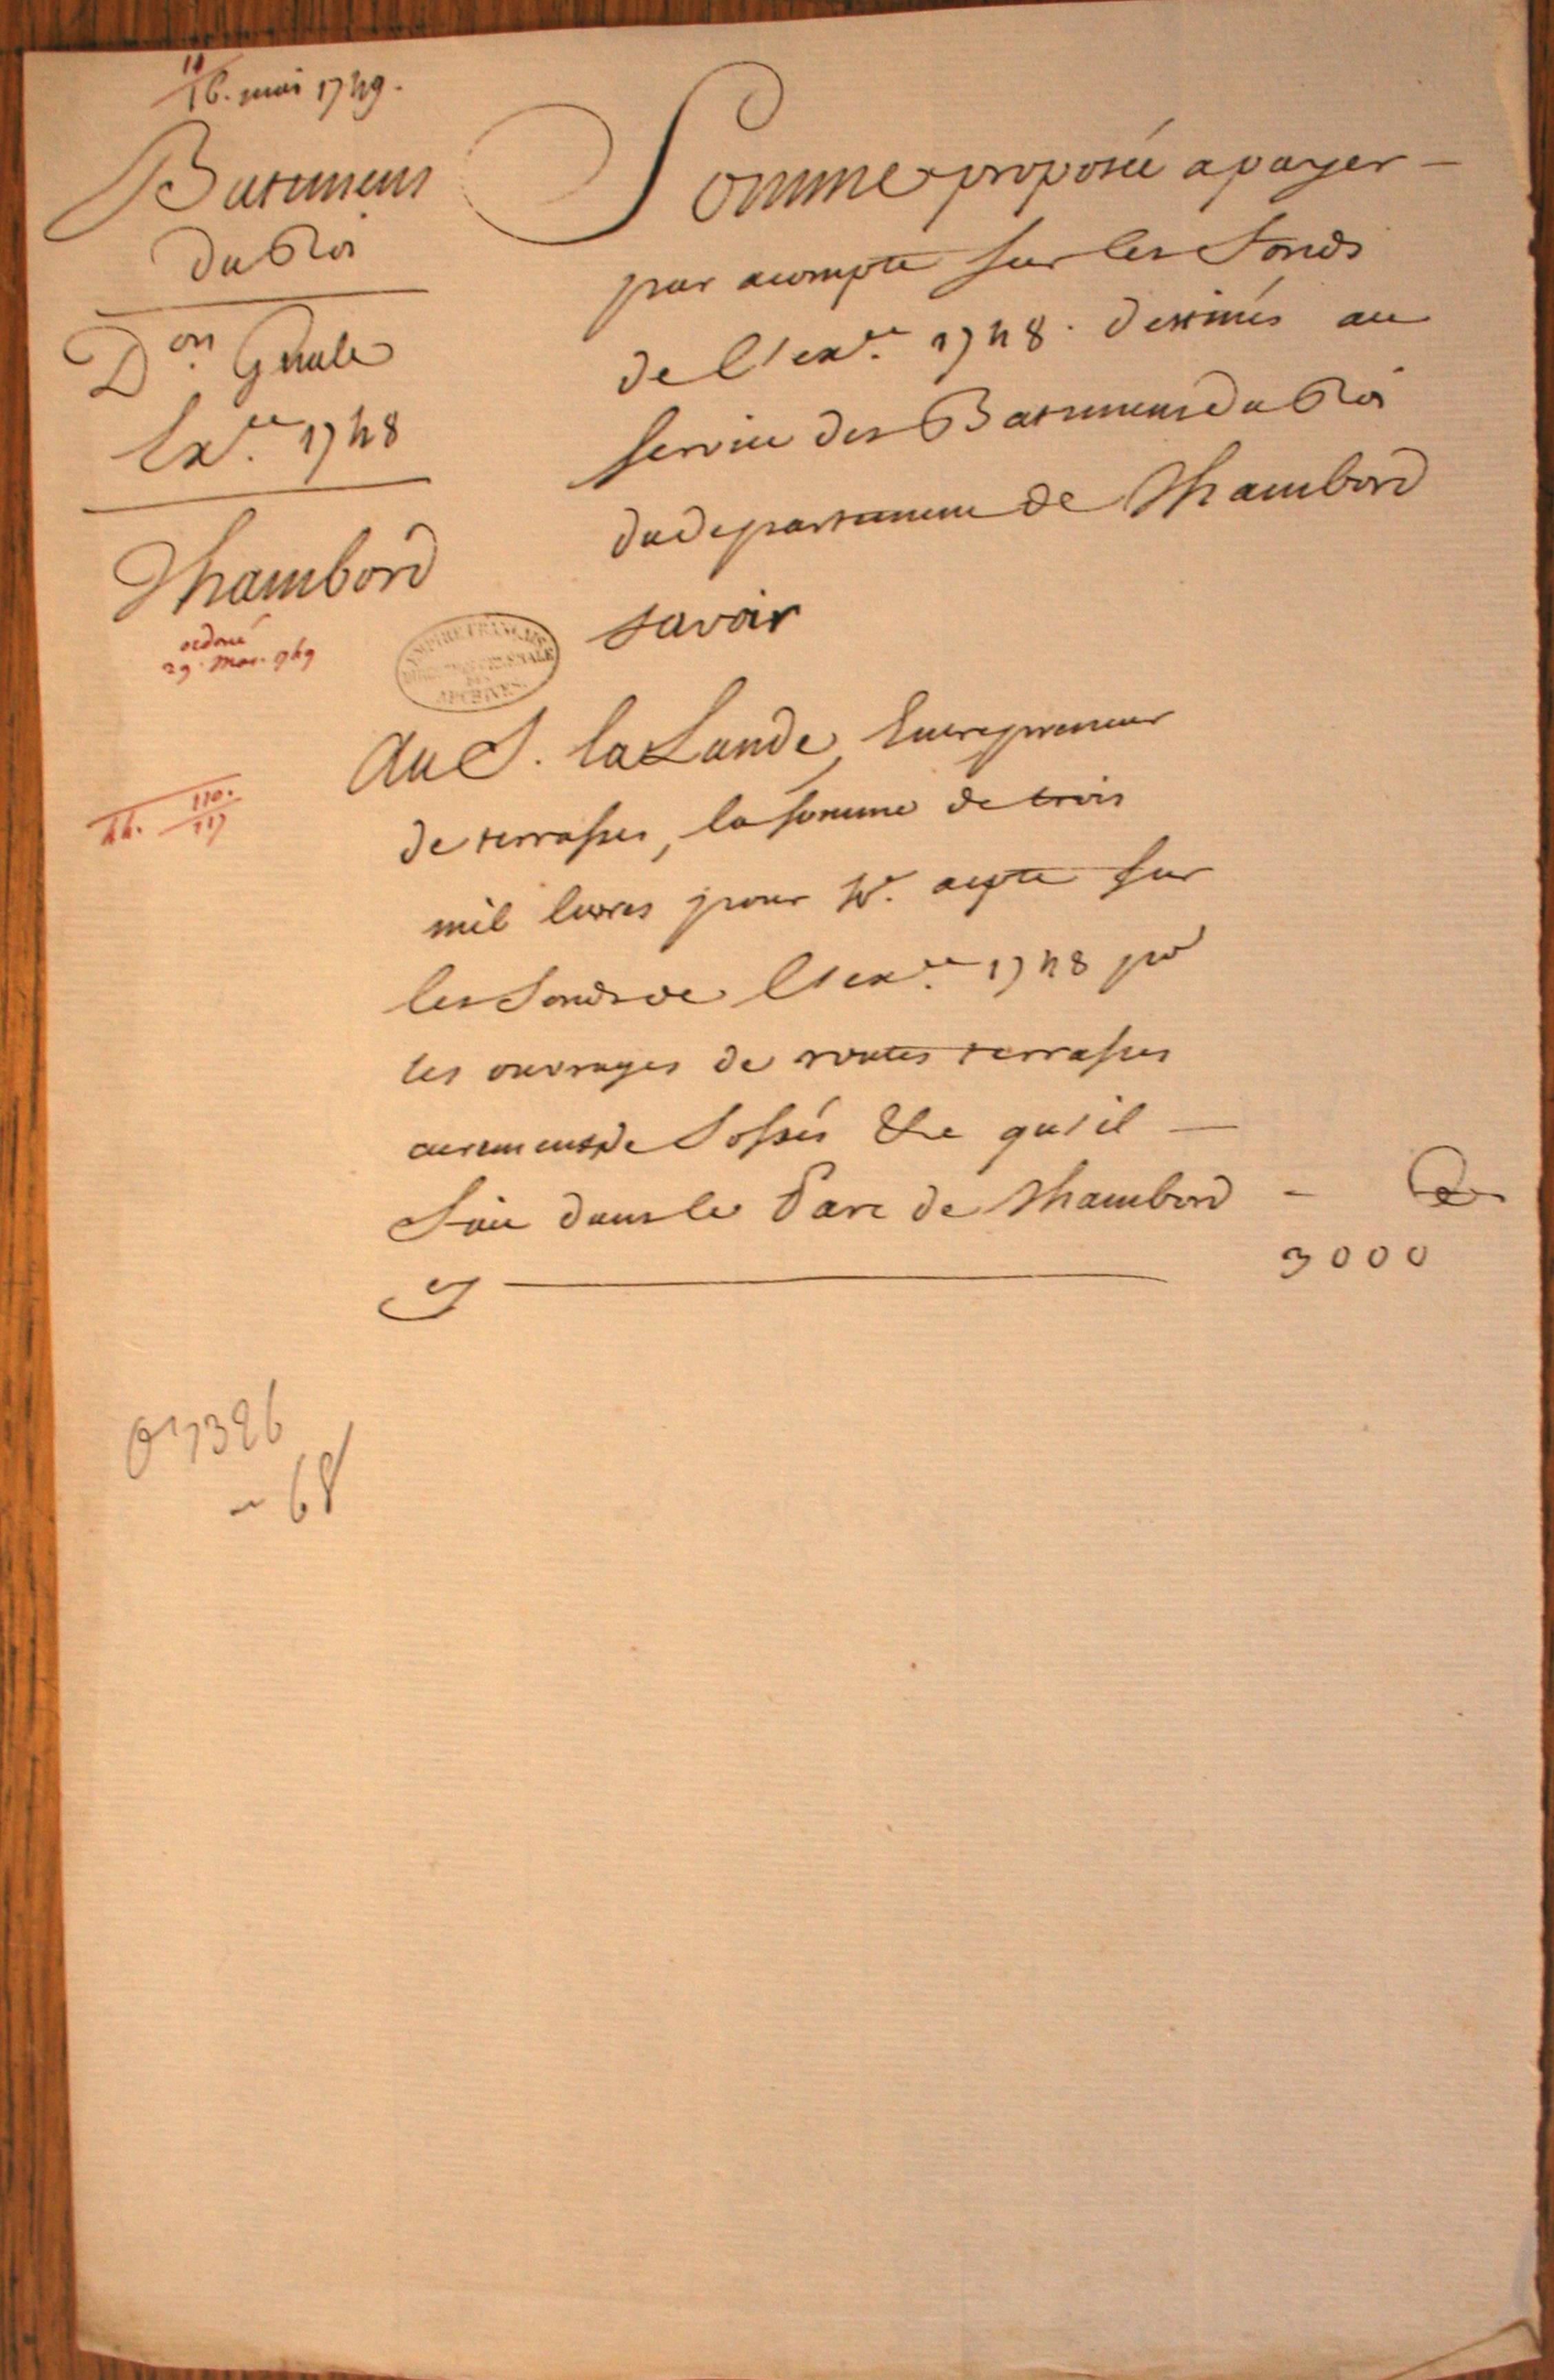 16. mai 1749.
Batimens
du Roi
D.on Gnale
Ex.ce 1748
Chambord
ordoné
29. mar. 749
110.
117
Somme proposée a payer
par acompte sur les fonds
de l'ex.ce 1748. destinés au
service des Batimens du Roi
du departement de Chambord
savoir
EMPIRE FRANÇAIS
ARCHIVES
Au S. la Lande, Entrepreneur
de terrasses, la somme de trois
mil livres pour acpte sur
les fonds de l'ex.ce 1748 pr
les ouvrages de routes terrasses
curemens de fossés &c qu'il
fait dans le Parc de Chambord
cy
3000
O1 1326
- 68